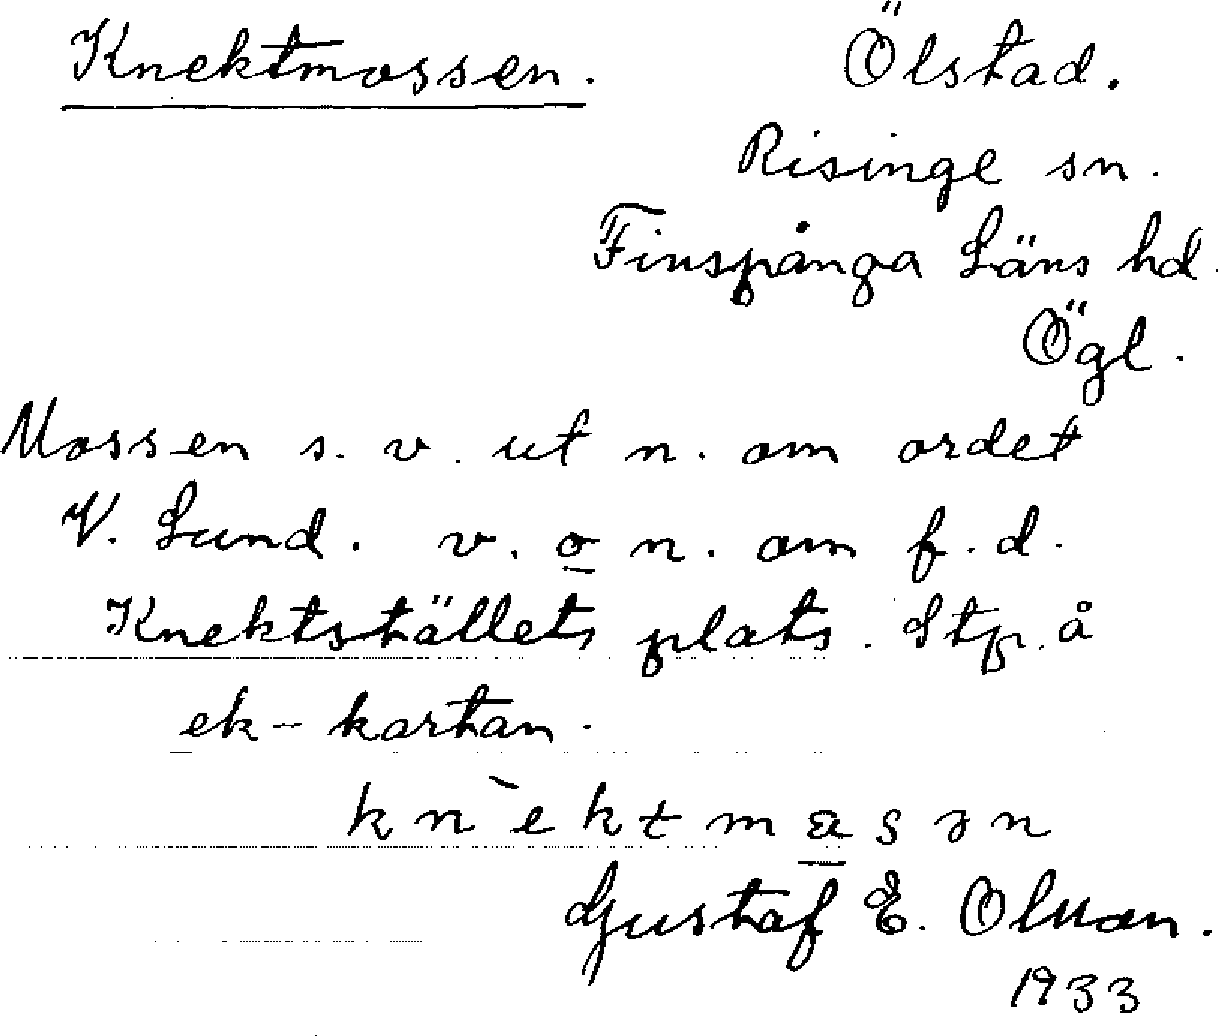 Knektmossen. Ölstad.
Risinge sn.
Finspånga Läns hd.
Ögl.
Mossen s. v. ut n. om ordet
V. Lund. v. o n. om f. d.
Knektställets plats. Stp. å
ek-kartan.
kn`ektmasən
Gustaf E. Olsson.
1933